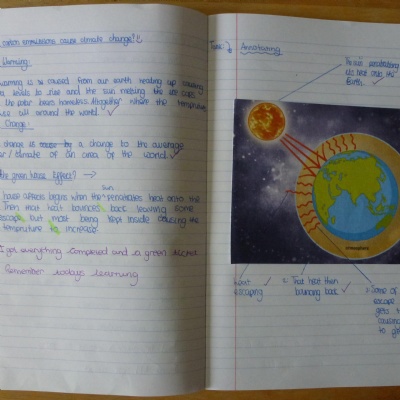 carbon emmisions cause climate change?
Warming
warming is is caused from our earth heating up causing
levels to rise and the sun melting the ice caps
the polar bears homeless. Altogether where the temperature
rise all around the world.
Change
change is a change to the average
/climate of an area of the world.
the green house effect?
sun
house effects begins when the penetrates heat onto the
Then that heat bounces back leaving some
escape but most being kept inside causing the
temperature to increase.
I got everything completed and a green
Remember todays learning
Task: Annotating
The sun penetrating
its heat onto the
Earth.
atmosphere
heat
escaping
= That heat then
bouncing back
= Some of
escape
gets
causing
to